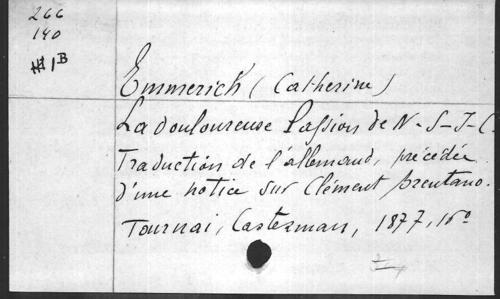 266
140
1B
Emmerich (Catherine)
La douloureuse Passion de N-S-J-C.
Traduction de l'allemand, précédée
d'une notice sur Clément Brentano.
Tournai, Casterman, 1877, 16o